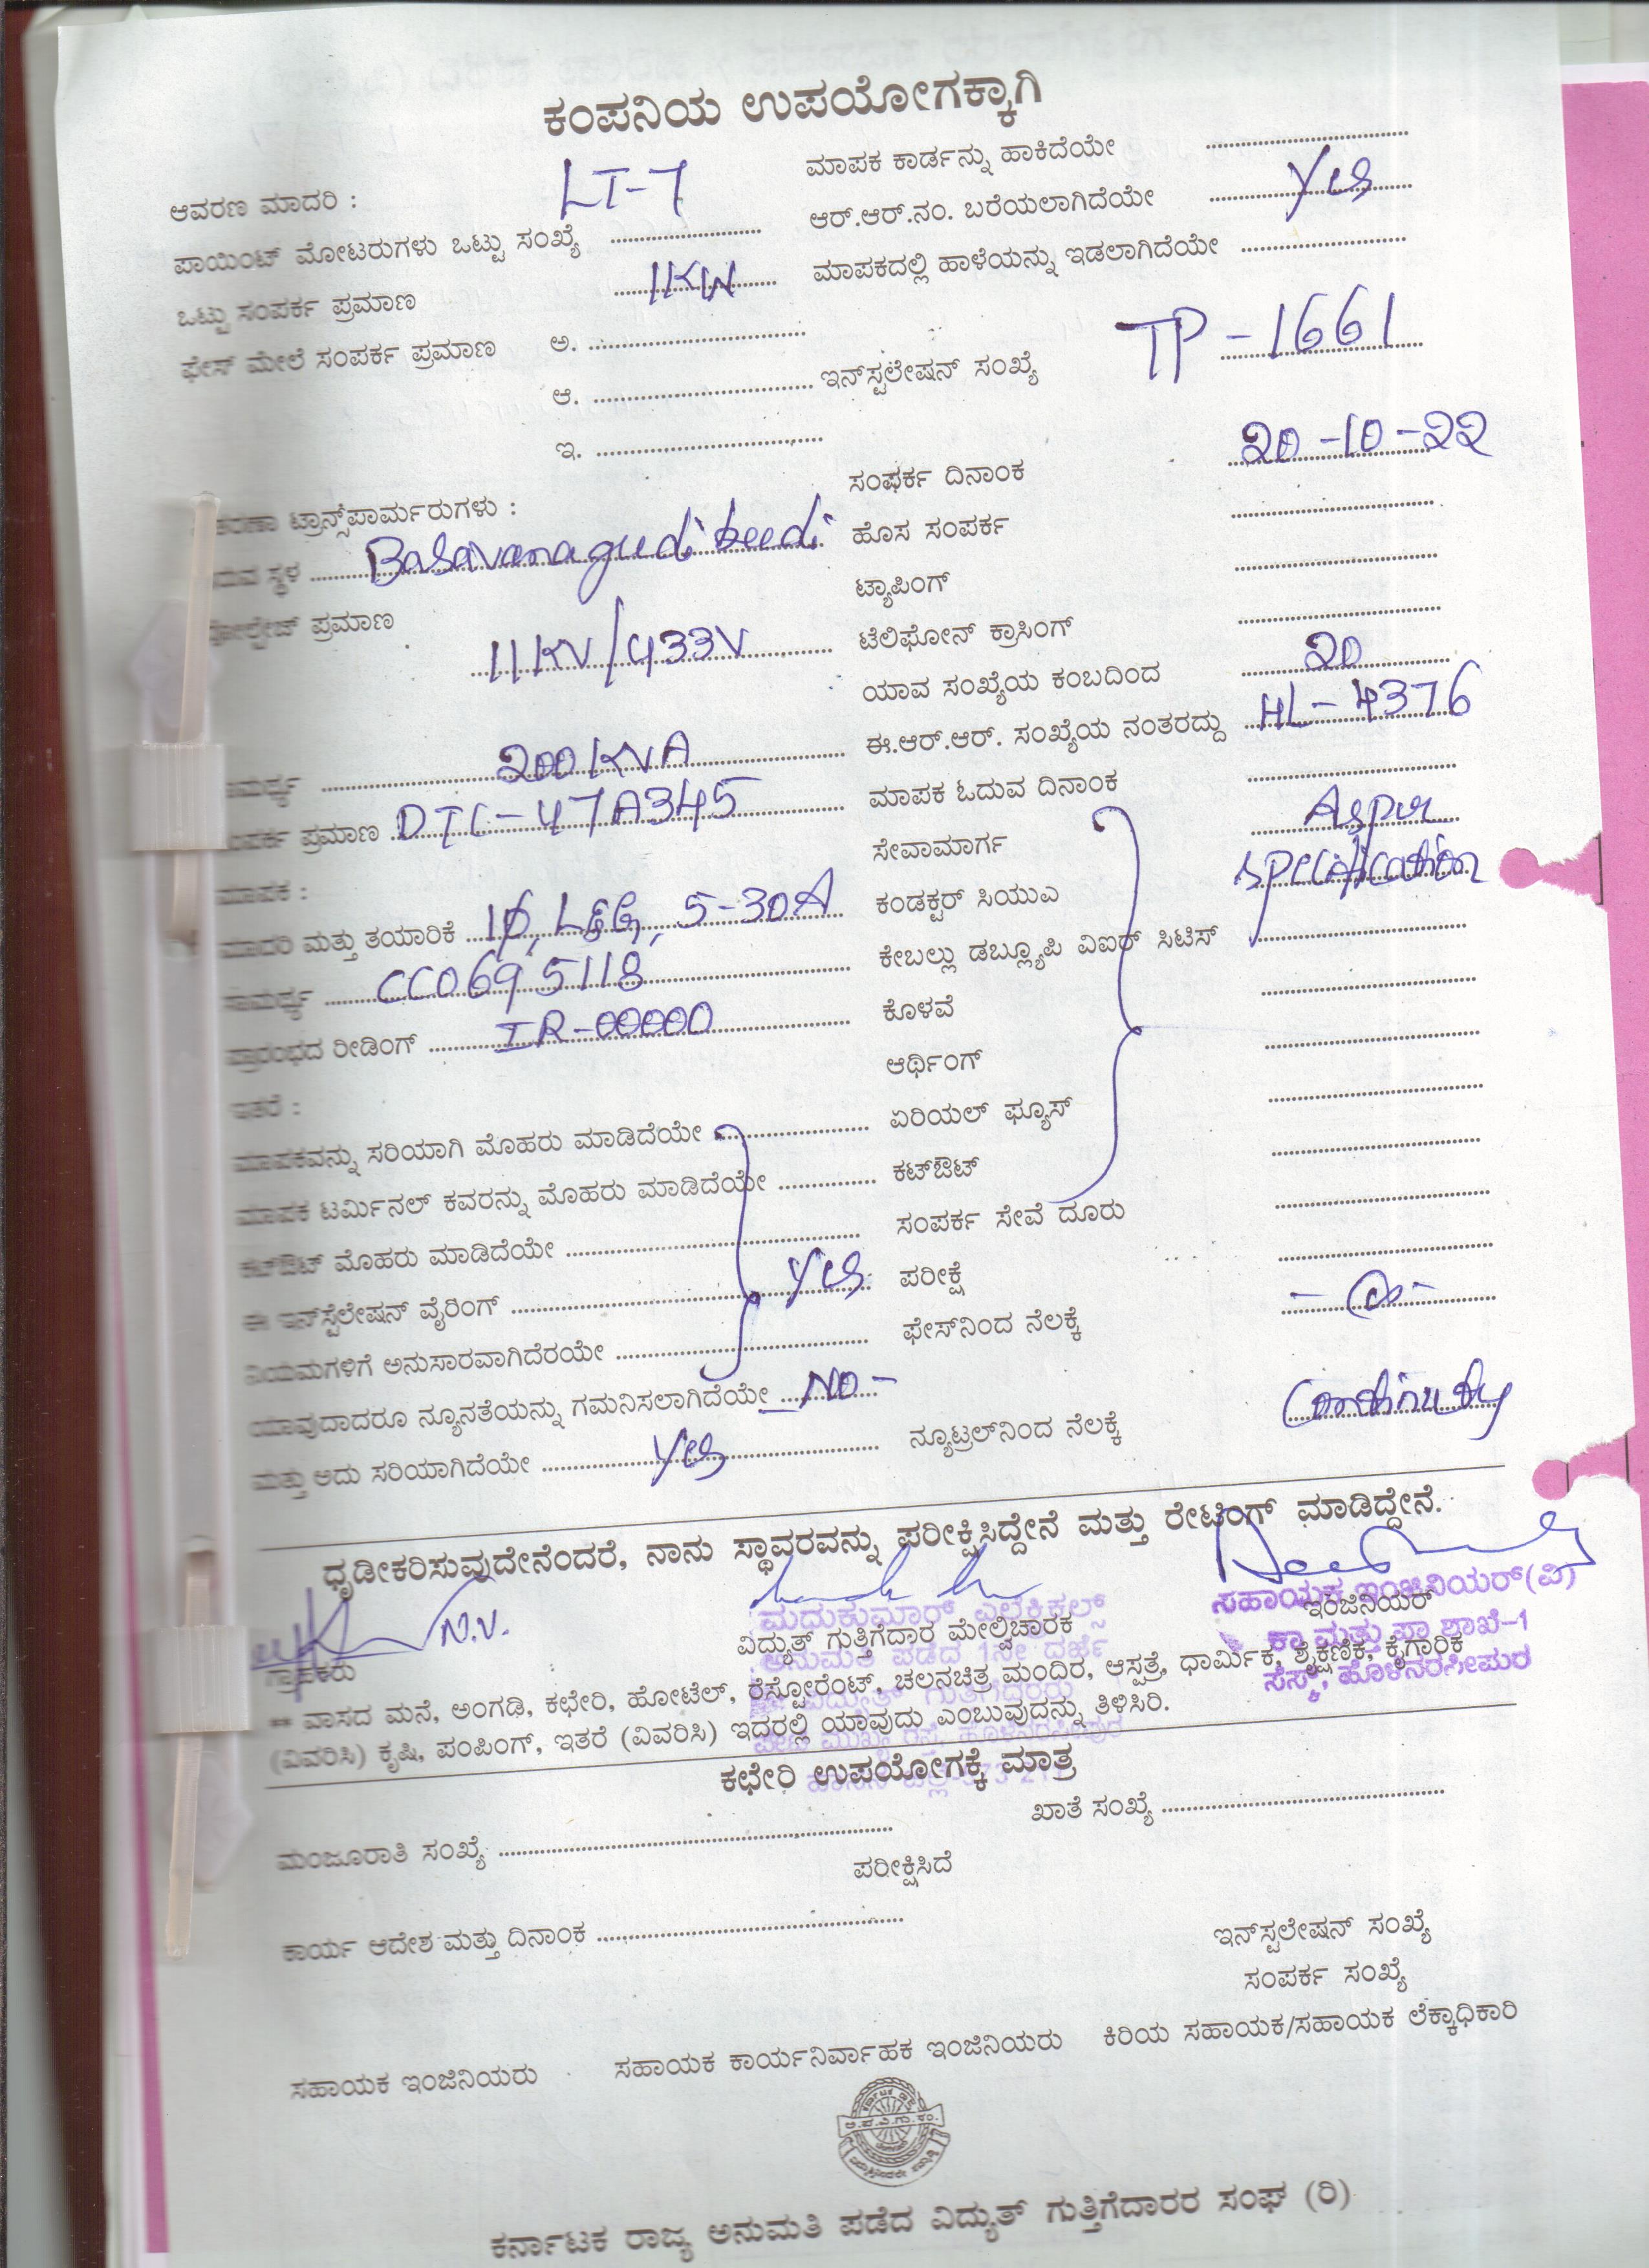 ಕಂಪನಿಯ ಉಪಯೋಗಕ್ಕಾಗಿ
ಆವರಣ ಮಾದರಿ : LT-7
ಪಾಯಿಂಟ್ ಮೋಟರುಗಳು ಒಟ್ಟು ಸಂಖ್ಯೆ
ಒಟ್ಟು ಸಂಪರ್ಕ ಪ್ರಮಾಣ 1KW
ಫೇಸ್ ಮೇಲೆ ಸಂಪರ್ಕ ಪ್ರಮಾಣ ಅ.
ಆ.
ಇ.
ಟ್ರಾನ್ಸ್‌ಪಾರ್ಮರುಗಳು :
ಸ್ಥಳ Basavanagudi beedi
ಪ್ರಮಾಣ
11KV/433V
200KVA
ಪ್ರಮಾಣ DTC-47A345
ಮಾಪಕ :
ಮಾದರಿ ಮತ್ತು ತಯಾರಿಕೆ 1Ø, L&G, 5-30A
ಸಾಮರ್ಥ್ಯ CC0695118
ಪ್ರಾರಂಭದ ರೀಡಿಂಗ್ IR-00000
ಇತರೆ :
ಮಾಪಕವನ್ನು ಸರಿಯಾಗಿ ಮೊಹರು ಮಾಡಿದೆಯೇ
ಮಾಪಕ ಟರ್ಮಿನಲ್ ಕವರನ್ನು ಮೊಹರು ಮಾಡಿದೆಯೇ
ಕಟ್‌ಔಟ್ ಮೊಹರು ಮಾಡಿದೆಯೇ
ಈ ಇನ್‌ಸ್ಟೆಲೇಷನ್ ವೈರಿಂಗ್ Yes
ನಿಯಮಗಳಿಗೆ ಅನುಸಾರವಾಗಿದೆರಯೇ
ಯಾವುದಾದರೂ ನ್ಯೂನತೆಯನ್ನು ಗಮನಿಸಲಾಗಿದೆಯೇ -NO-
ಮತ್ತು ಅದು ಸರಿಯಾಗಿದೆಯೇ Yes
ಮಾಪಕ ಕಾರ್ಡನ್ನು ಹಾಕಿದೆಯೇ
ಆರ್.ಆರ್.ನಂ. ಬರೆಯಲಾಗಿದೆಯೇ Yes
ಮಾಪಕದಲ್ಲಿ ಹಾಳೆಯನ್ನು ಇಡಲಾಗಿದೆಯೇ
ಇನ್‌ಸ್ಟಲೇಷನ್ ಸಂಖ್ಯೆ TP-1661
ಸಂಪರ್ಕ ದಿನಾಂಕ 20-10-22
ಹೊಸ ಸಂಪರ್ಕ
ಟ್ಯಾಪಿಂಗ್
ಟೆಲಿಫೋನ್ ಕ್ರಾಸಿಂಗ್
ಯಾವ ಸಂಖ್ಯೆಯ ಕಂಬದಿಂದ 20
ಈ.ಆರ್.ಆರ್. ಸಂಖ್ಯೆಯ ನಂತರದ್ದು HL-4376
ಮಾಪಕ ಓದುವ ದಿನಾಂಕ
ಸೇವಾಮಾರ್ಗ Asper
ಕಂಡಕ್ಟರ್ ಸಿಯುಎ specification
ಕೇಬಲ್ಲು ಡಬ್ಲ್ಯೂಪಿ ವಿಐಆರ್ ಸಿಟಿಸ್
ಕೊಳವೆ
ಆರ್ಥಿಂಗ್
ಏರಿಯಲ್ ಫ್ಯೂಸ್
ಕಟ್‌ಔಟ್
ಸಂಪರ್ಕ ಸೇವೆ ದೂರು
ಪರೀಕ್ಷೆ
ಫೇಸ್‌ನಿಂದ ನೆಲಕ್ಕೆ
ನ್ಯೂಟ್ರಲ್‌ನಿಂದ ನೆಲಕ್ಕೆ Continuity
ಧೃಡೀಕರಿಸುವುದೇನೆಂದರೆ, ನಾನು ಸ್ಥಾವರವನ್ನು ಪರೀಕ್ಷಿಸಿದ್ದೇನೆ ಮತ್ತು ರೇಟಿಂಗ್ ಮಾಡಿದ್ದೇನೆ.
N.V.
ಮಧುಕುಮಾರ್ ಎಲೆಕ್ಟ್ರಿಕಲ್ಸ್
ಅನುಮತಿ ಪಡೆದ 1ನೇ ದರ್ಜೆ
ಸಹಾಯಕ ಇಂಜಿನಿಯರ್(ವಿ)
ಕಾ ಮತ್ತು ಪಾ ಶಾಖೆ-1
ಸೆಸ್ಕ್, ಹೊಳೆನರಸೀಪುರ
ಗ್ರಾಹಕರು
ವಿದ್ಯುತ್ ಗುತ್ತಿಗೆದಾರ ಮೇಲ್ವಿಚಾರಕ
ಇಂಜಿನಿಯರ್
** ವಾಸದ ಮನೆ, ಅಂಗಡಿ, ಕಛೇರಿ, ಹೋಟೆಲ್, ರೆಸ್ಟೋರೆಂಟ್, ಚಲನಚಿತ್ರ ಮಂದಿರ, ಆಸ್ಪತ್ರೆ, ಧಾರ್ಮಿಕ, ಶೈಕ್ಷಣಿಕ, ಕೈಗಾರಿಕೆ
(ವಿವರಿಸಿ) ಕೃಷಿ, ಪಂಪಿಂಗ್, ಇತರೆ (ವಿವರಿಸಿ) ಇದರಲ್ಲಿ ಯಾವುದು ಎಂಬುವುದನ್ನು ತಿಳಿಸಿರಿ.
ಕಛೇರಿ ಉಪಯೋಗಕ್ಕೆ ಮಾತ್ರ
ಮಂಜೂರಾತಿ ಸಂಖ್ಯೆ
ಖಾತೆ ಸಂಖ್ಯೆ
ಪರೀಕ್ಷಿಸಿದೆ
ಕಾರ್ಯ ಆದೇಶ ಮತ್ತು ದಿನಾಂಕ
ಇನ್‌ಸ್ಟಲೇಷನ್ ಸಂಖ್ಯೆ
ಸಂಪರ್ಕ ಸಂಖ್ಯೆ
ಸಹಾಯಕ ಇಂಜಿನಿಯರು ಸಹಾಯಕ ಕಾರ್ಯನಿರ್ವಾಹಕ ಇಂಜಿನಿಯರು ಕಿರಿಯ ಸಹಾಯಕ/ಸಹಾಯಕ ಲೆಕ್ಕಾಧಿಕಾರಿ
ಅ.ಪ.ವಿ.ಗು.ಸಂ.
ಕರ್ನಾಟಕ ರಾಜ್ಯ ಅನುಮತಿ ಪಡೆದ ವಿದ್ಯುತ್ ಗುತ್ತಿಗೆದಾರರ ಸಂಘ (ರಿ)